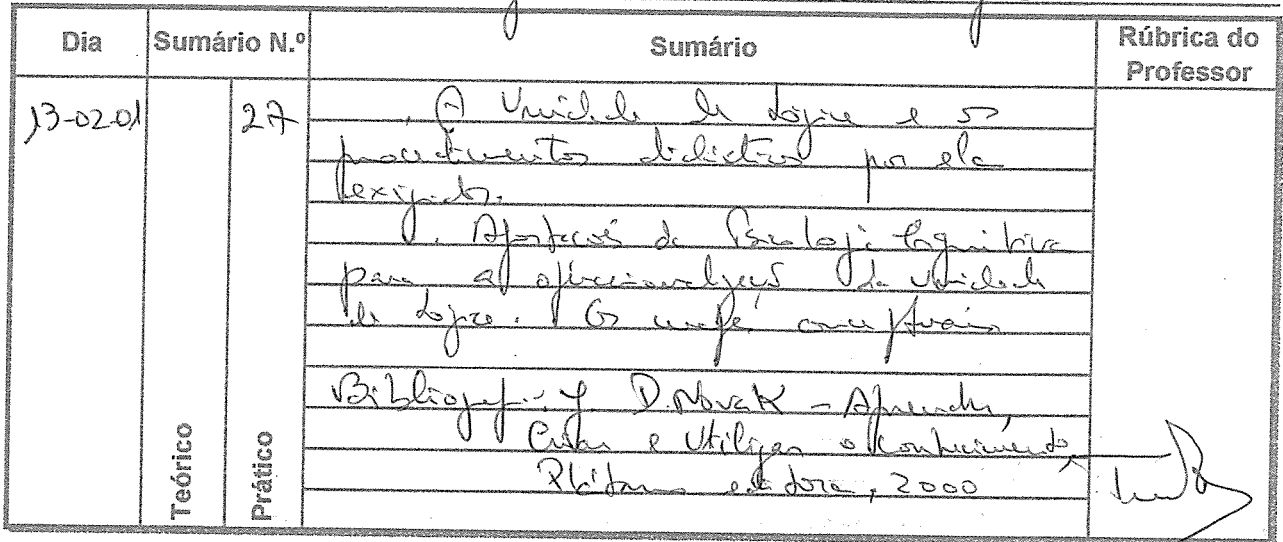 Dia Sumário N.º Sumário Rúbrica do Professor
13-02-01 27 . A Unidade de Lógica e os
procedimentos didácticos por ela
exigidos.
. Aportações da Psicologia Cognitiva
para a operacionalização da unidade
de Lógica. Os mapas conceptuais
Bibliografia: J. D. Novak - Aprender,
Criar e Utilizar o Conhecimento,
Plátano editora, 2000
Teórico Prático